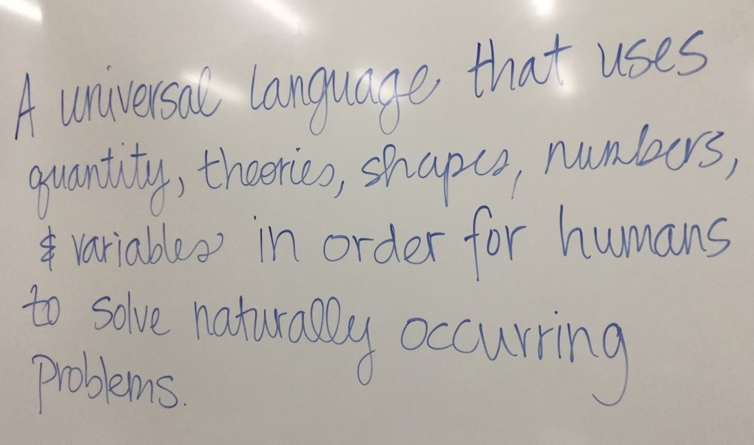 A universal language that uses
quantity, theories, shapes, numbers,
& variables in order for humans
to solve naturally occurring
problems.